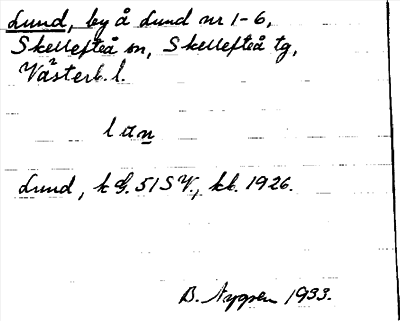 Lund, by å Lund nr 1-6,
Skellefteå sn, Skellefteå tg,
Västerb. l.
lan
Lund, k G. 51 SV., kb. 1926.
B. Nygren 1933.